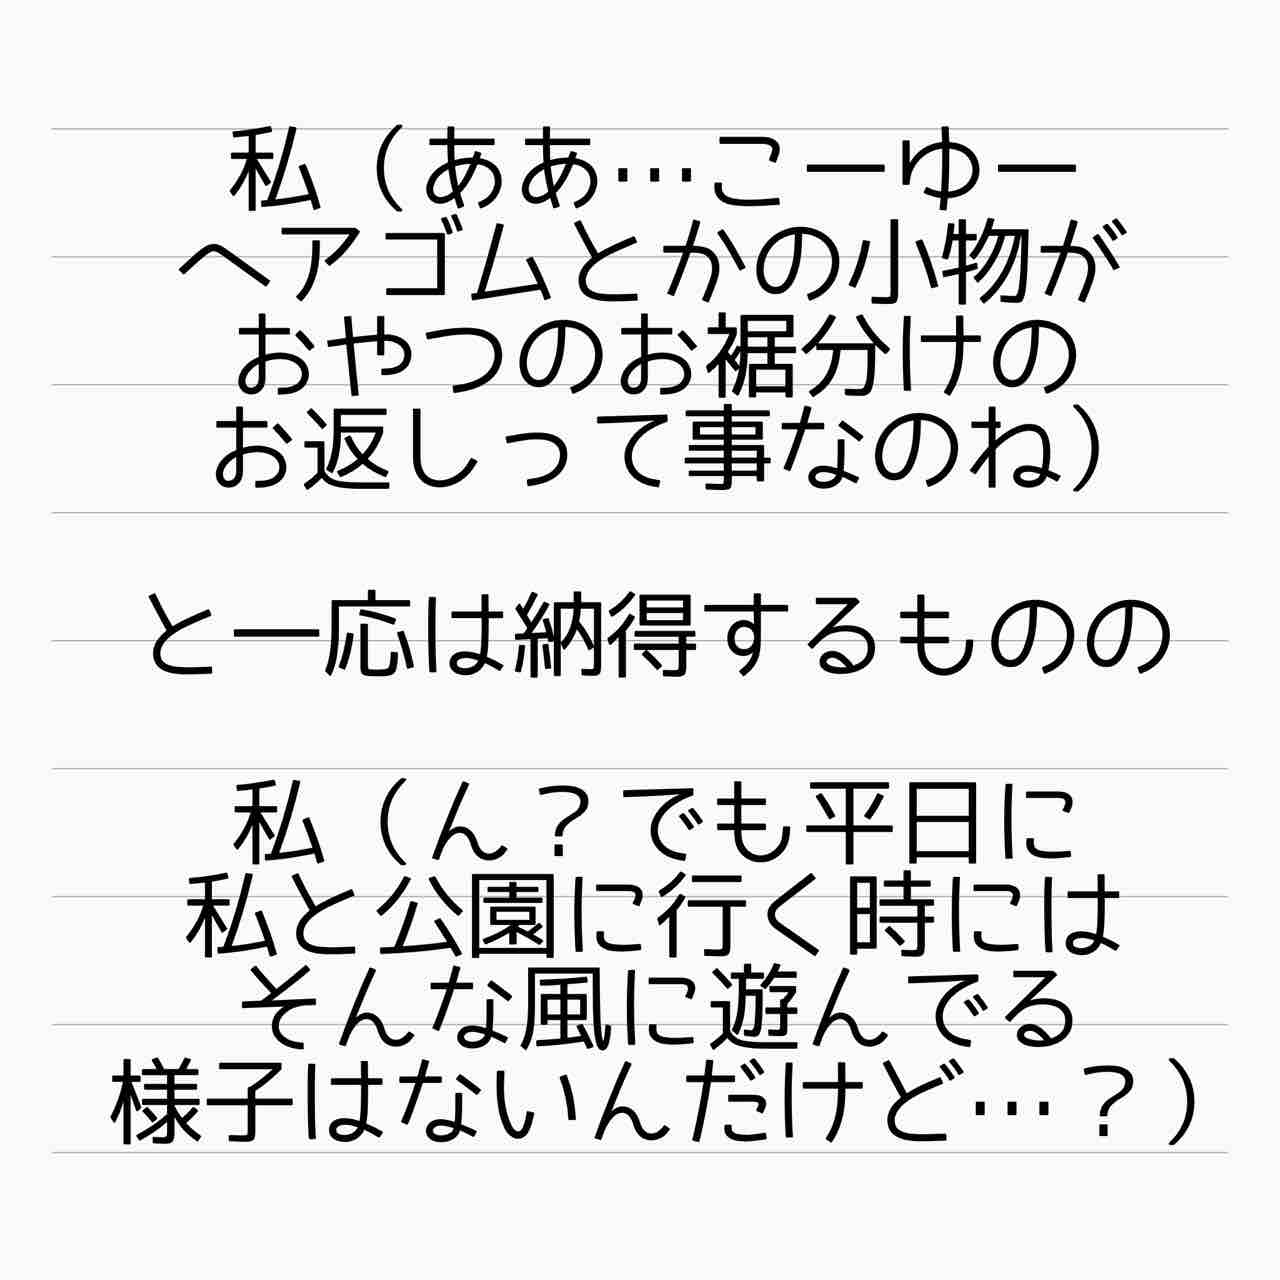 私（ああ…こーゆー
ヘアゴムとかの小物が
おやつのお裾分けの
お返しって事なのね）
と一応は納得するものの
私（ん？でも平日に
私と公園に行く時には
そんな風に遊んでる
様子はないんだけど…？）